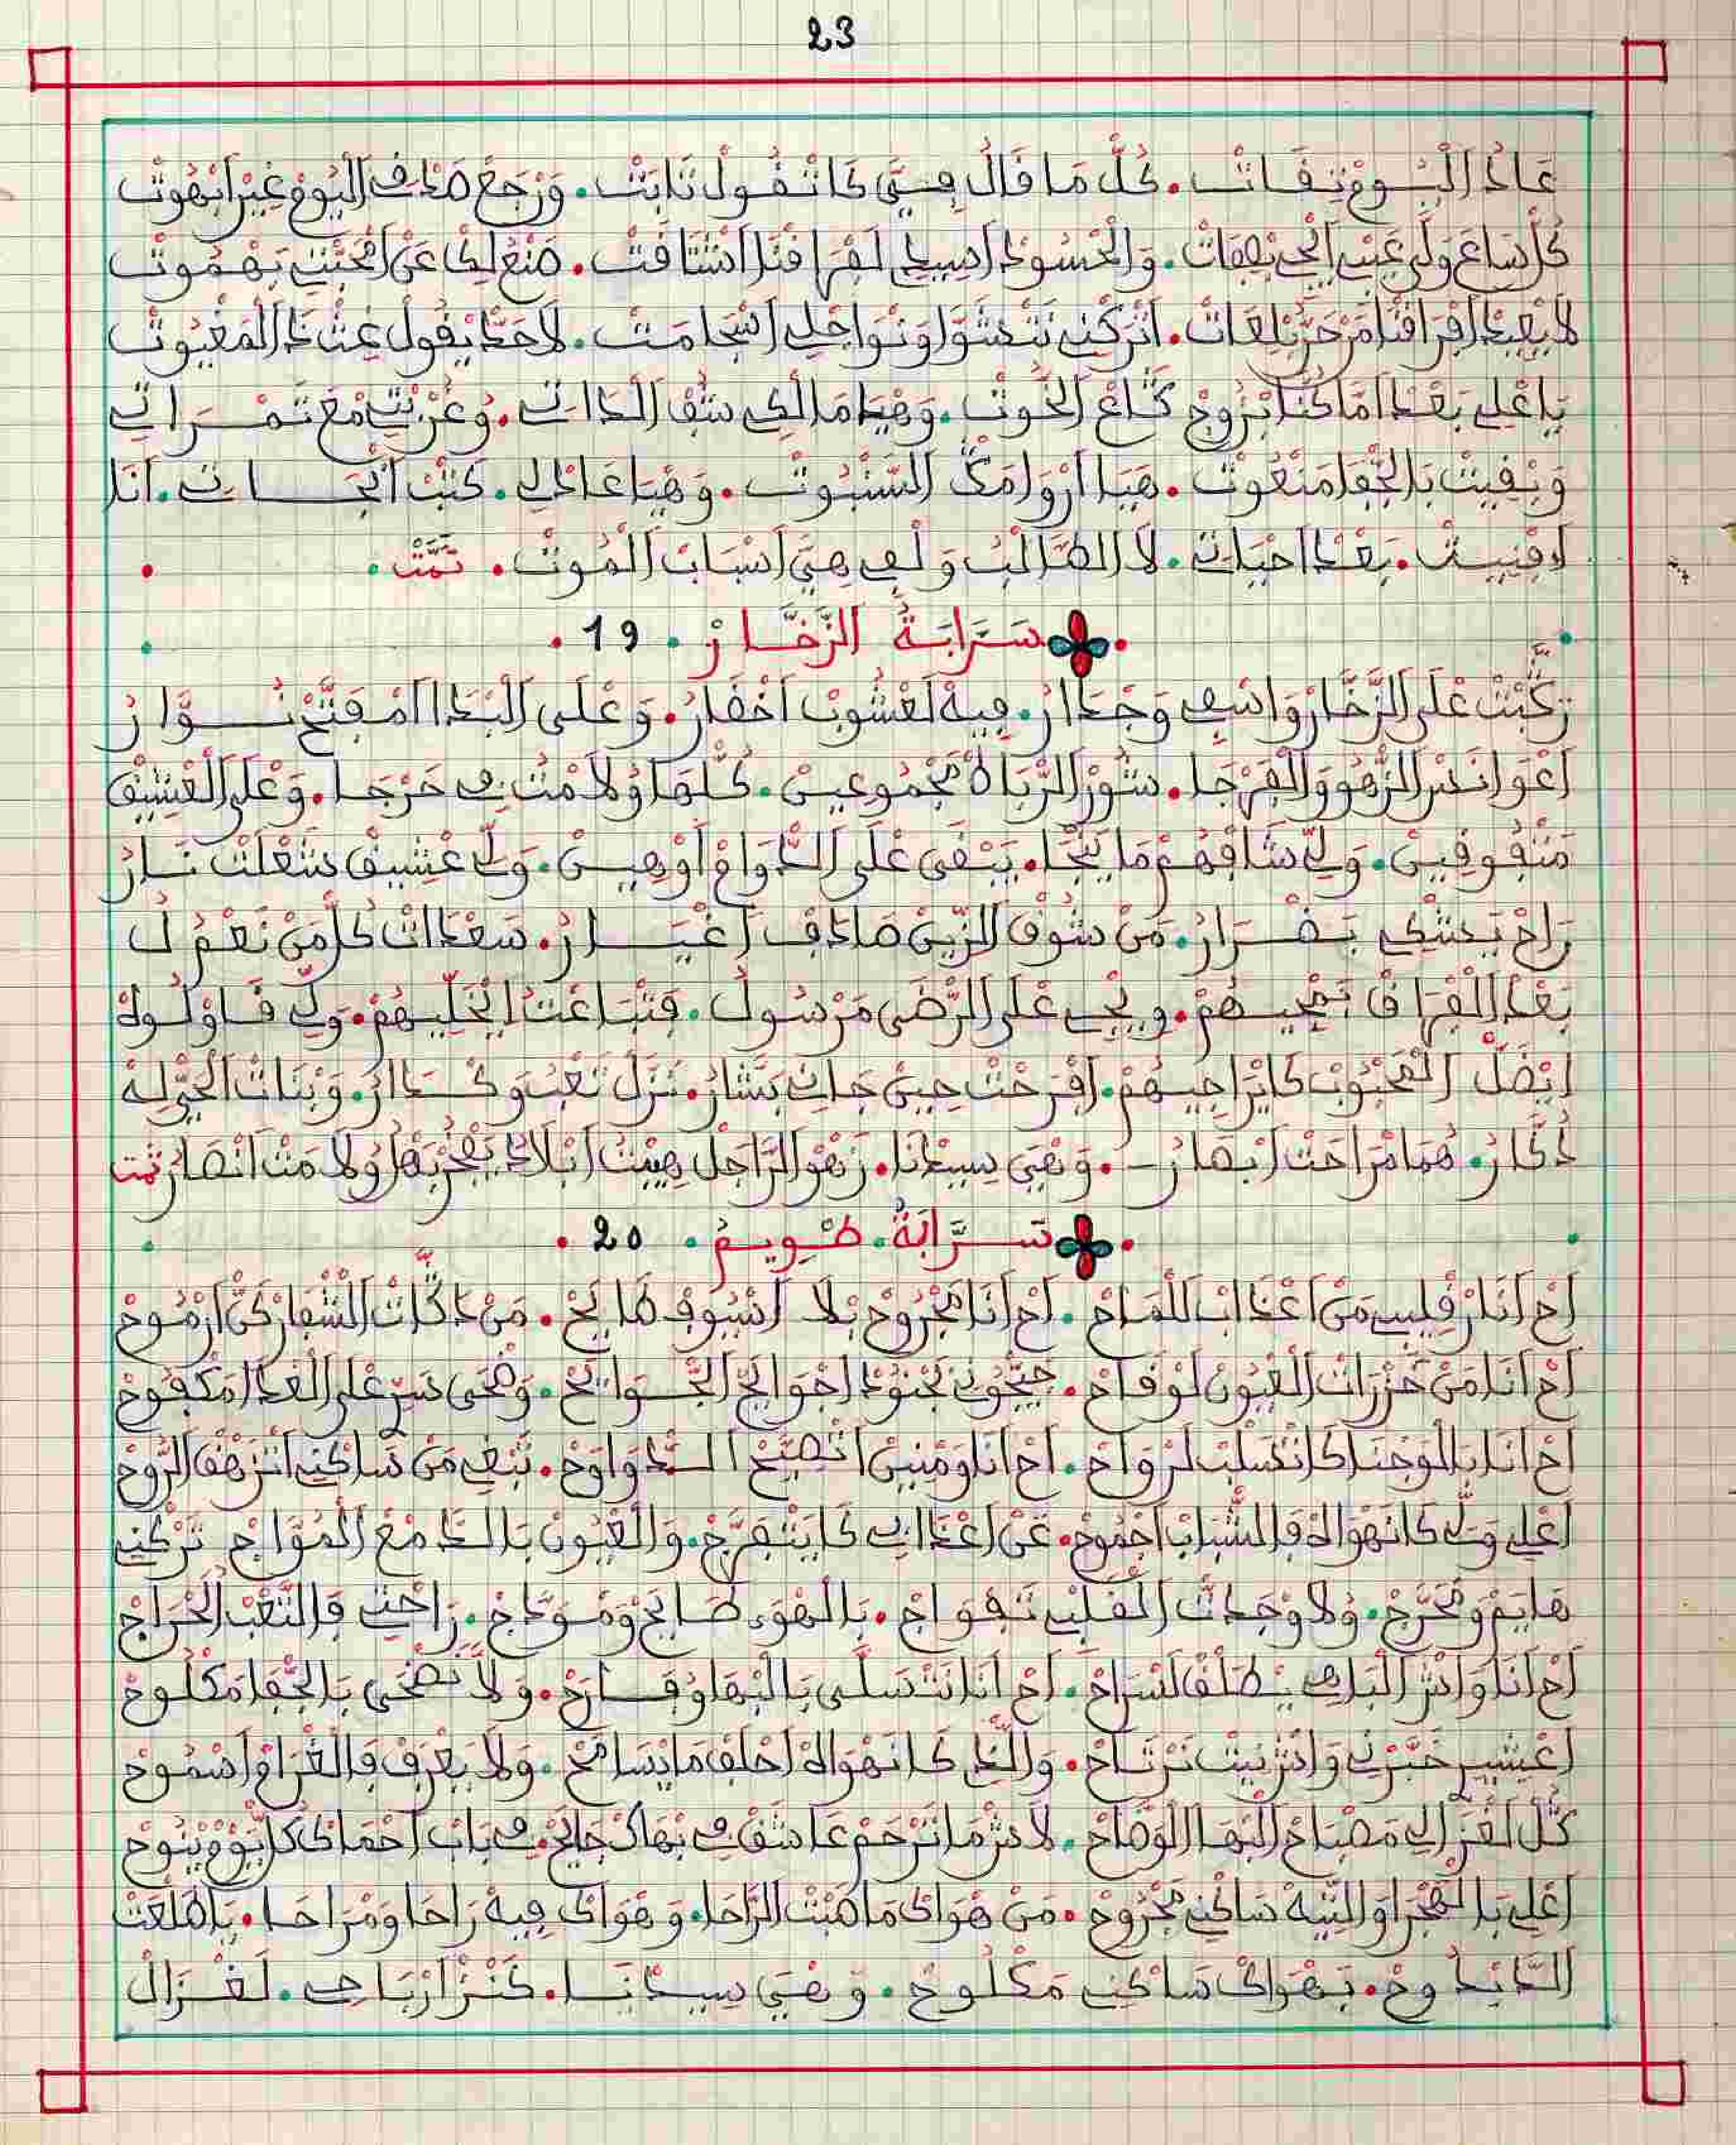 23
عَادْ الْيُومْ نِفَاتْ. كُلّْ مَا قَالْ فِيَّ كَاتْقُولْ نَابَتْ. وَرْجَعْ صَادَفْ الْيُومْ غِيرْ اَبْهُوتْ
كُلْ سَاعَ وَلِّي غَيْبْ وَالْحْسُودْ اصِيبْلِي لَفْرَاقْنَا اشْتَاقَتْ. صَنْعْ لِكَا عَنْ الْمْحَبَّتْ بَهْمُوتْ
لَا يْعِيدْ افْرَاقْنَا مَنْ اَتْرَكْنِي نَنْشْوَا وَنْوَاجْلِي اسْجَامَتْ. لَا حَدّْ يْقُولْ غِثْ دَا الْمَغْيُوتْ
يَا عْلِي بَعْدْ امَّا كْنَّا بْزُوجْ كَّاعْ الْخُوتْ. وَهْيَا مَالْكِي سْقْ الدَّاتْ. وُعْرْبِي مْعْ تَمْرَاتِي
وَبْقِيتْ بَالْجْفَا مَنْعُوتْ. هْيَا ارْوَا مَكْ السّْبُوتْ. وَهْيَا عَادْلِي. كَتْبْ اَنْجَاتِي. اَنَا
افْنِيتْ. بَعْدْ احْيَاتِي. لَا الطَّالْبْ وَلْفِي هِيَّ اسْبَابْ الْمُوتْ. تَمَّتْ.
سَرَّابَةُ الزَّخَّارْ. 19.
رَكْبْتْ عْلَى الزَّخَّارْ وَاسْفِي وَجْدَارْ. فِيهْ لَعْشُوبْ اخْضَارْ. وَعْلَى الْبْدَا امْفَتَّحْ نُوَّارْ
اَعْوَانَسْ الزّْهُو وَالْفْرْجَا. سُورْ الرّْبَاطْ مْجْمُوعِينْ. كُلّْهَا وُلَامْتْ فِي حَرْجَا. وَعْلَى الْعْشِيقْ
مَنْفُوقِينْ. وَلِّي شَافْهُمْ مَا يَنْجَا. يَبْقَى عْلَى الدّْوَامْ اوْهِينْ. وَلِّي عْشِيقْ شَعْلَتْ نَارْ
رَاحْ يَشْكِي بَضْرَارْ. مَنْ شُوفْ الزِّينْ صَادَفْ اغْيَارْ. سَعْدَاتْ كُلّْ مَنْ نَعْمْ لُ
بَعْدْ الْفْرَاقْ بَمْجِيهُمْ. وِيجِي عْلَى الرّْضَى مَرْسُولْ. فَنْبَاعْتُ ايْخَلِّيهُمْ. وَلِّي قَاوْلُوهْ
ايْضَلّْ الْمْحْبُوبْ كَايْرَاجِيهُمْ. افْرَحْتْ حِينْ جَانِي بَشَّارْ. نَزَّلْ تَعْبُ وَكْدَارُ. وَبْنَاتْ الْحَيّْ لِيهْ
دُكَّارْ. هُمَا مْرَاحَتْ ابْصَارْ. وَهْيَ سِيدْنَا. زَهْو الرَّاجَلْ هِيبْتُ ابْلَادُ يَفْجْرْبْهَا وُلَامَتْ انْصَارْ تمت
سَرَّابَةُ. طْوِيمُ. 20.
اَحْ اَنَا رْفِيبِي مَنْ اعْدَابْ لَلْمَاحْ. اَحْ اَنَا مْجْرُوحْ بْلَا اسْيُوفْ طَايَحْ. مَنْ دَكَّاتْ الشّْفَارْ كَنّْ ارْمُوحْ
اَحْ اَنَا مَنْ خَزْرَاتْ الْعْيُونْ لَوْقَاحْ. جَيّْحُونِي بَجْنُودْ اجْوَالَحْ الْجْوَايَحْ. وَضْحَى سَرّْ عْلَى الْعْدَا مَكْفُوحْ
اَحْ اَنَا بَالْوَجْنَا كَاتْسَلْبْ لَرْوَاحْ. اَحْ اَنَا وَمْنِينْ اتْصِيحْ الدّْوَاوَحْ. تَبْغِي مَنْ سَاكْنِي اتَزْهَقْ الرُّوحْ
اعْلِي وَلِّي كَانَهْوَاهْ فَالشّْبَابْ اجْمُوحْ. عَنْ اعْدَابِي كَايَتْفَرَّجْ. وَالْعْيُونْ بَالدَّمْعْ الْمُوَّاجْ تَرْكْنِي
هَايَمْ وَمْحَرَّجْ. وُلَا وْجَدْتْ الْقَلْبِي تَفْوَاجْ. بَالْهْوَى طَايَحْ وَمْوَدَّجْ. رَاحْتِي فَالتَّعْبْ الْحْرَاجْ
اَحْ اَنَا وَاشْ الْبَاهِي يَطْلَقْ لَسْرَاحْ. اَحْ اَنَا نَتْسَلَّى بَالْبْهَا وُفَارَحْ. وَلَا نَضْحَى بَالْجْفَا مَكْلُوحْ
اعْشِيرْ خَبَّرْنِي وَاشْ نْبِيتْ نَرْتَاحْ. وَاللِّي كَانَهْوَاهْ احْلَفْ مَا يْسَامَحْ. وَلَا يَعْرَفْ فَالْغْرَامْ اسْمُوحْ
كُلّْ لَغْزَالِي مَصْبَاحْ الْبْهَا الْوَضَّاحْ. لَاشْ مَا تَرْحَمْ عَاشَقْ فِي بْهَاكْ جَايَحْ. فِي بَابْ احْمَاكْ كُلّْ يُومْ يْنُوحْ
اعْلِي بَالْهْجْرْ وَالتِّيهْ سَاكْنِي مَجْرُوحْ. مَنْ هْوَاكْ مَا صْبْتْ الرَّاحَا. وَهْوَاكْ فِيهْ رَاحَا وَمْرَاحَا. يَا طَلْعَتْ
الدَّيْدُوحْ. بَهْوَاكْ سَاكْنِي مَكْلُوحْ. وَهْيَ سِيدْنَا. كَنْزْ ارْبَاحِي. لَغْزَالْ